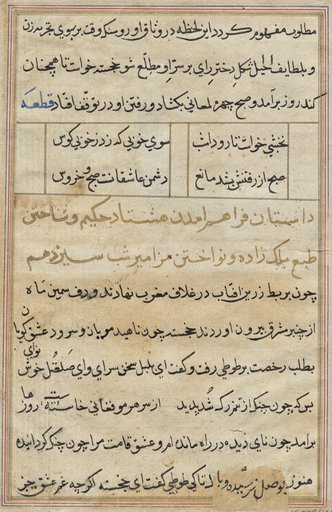 مطلوب مفهوم کردد این لحظه در وثاق او رو و سکوفت بر سبوی تجربه زن
و بلطایف الحیل شکل دختر رای بر سر او مطلع شو خجسته خواست تا همچنان
کند روز برآمد و صبح چهره لمعانی بکشاد و رفتن او در توقف افتاد قطعه
نخشبی خواست تا رود امشب سوی خوبی که زد ز خوبی کوس
صبح از رفتنش بشد مانع دشمن عاشقانست صبح و خروس
داستان فراهم آمدن هشتاد حکیم و شناختن
طبع ملک زاده و نواختن مزامیر شب سیزدهم
چون بربط زرین افتاب در غلاف مغرب نهادند و دف سمین ماه
از چنبر مشرق بیرون اوردند خجسته چون ناهید مویان و سرود عشق کویان
بطلب رخصت بر طوطی رفت و کفت ای بلبل سخن سرای و ای صلصل خوش نوای
بس که چون چنک از تنم رک شد پدید از سر هر مو فغانی خاسته است روزها
برآمد چون نای دیده در راه مانده ام و عشق قامت مرا چون چنک کردانیده
هنوز بوصل نرسیده و طوطی کفت ای خجسته اکرچه غم عشق چیز